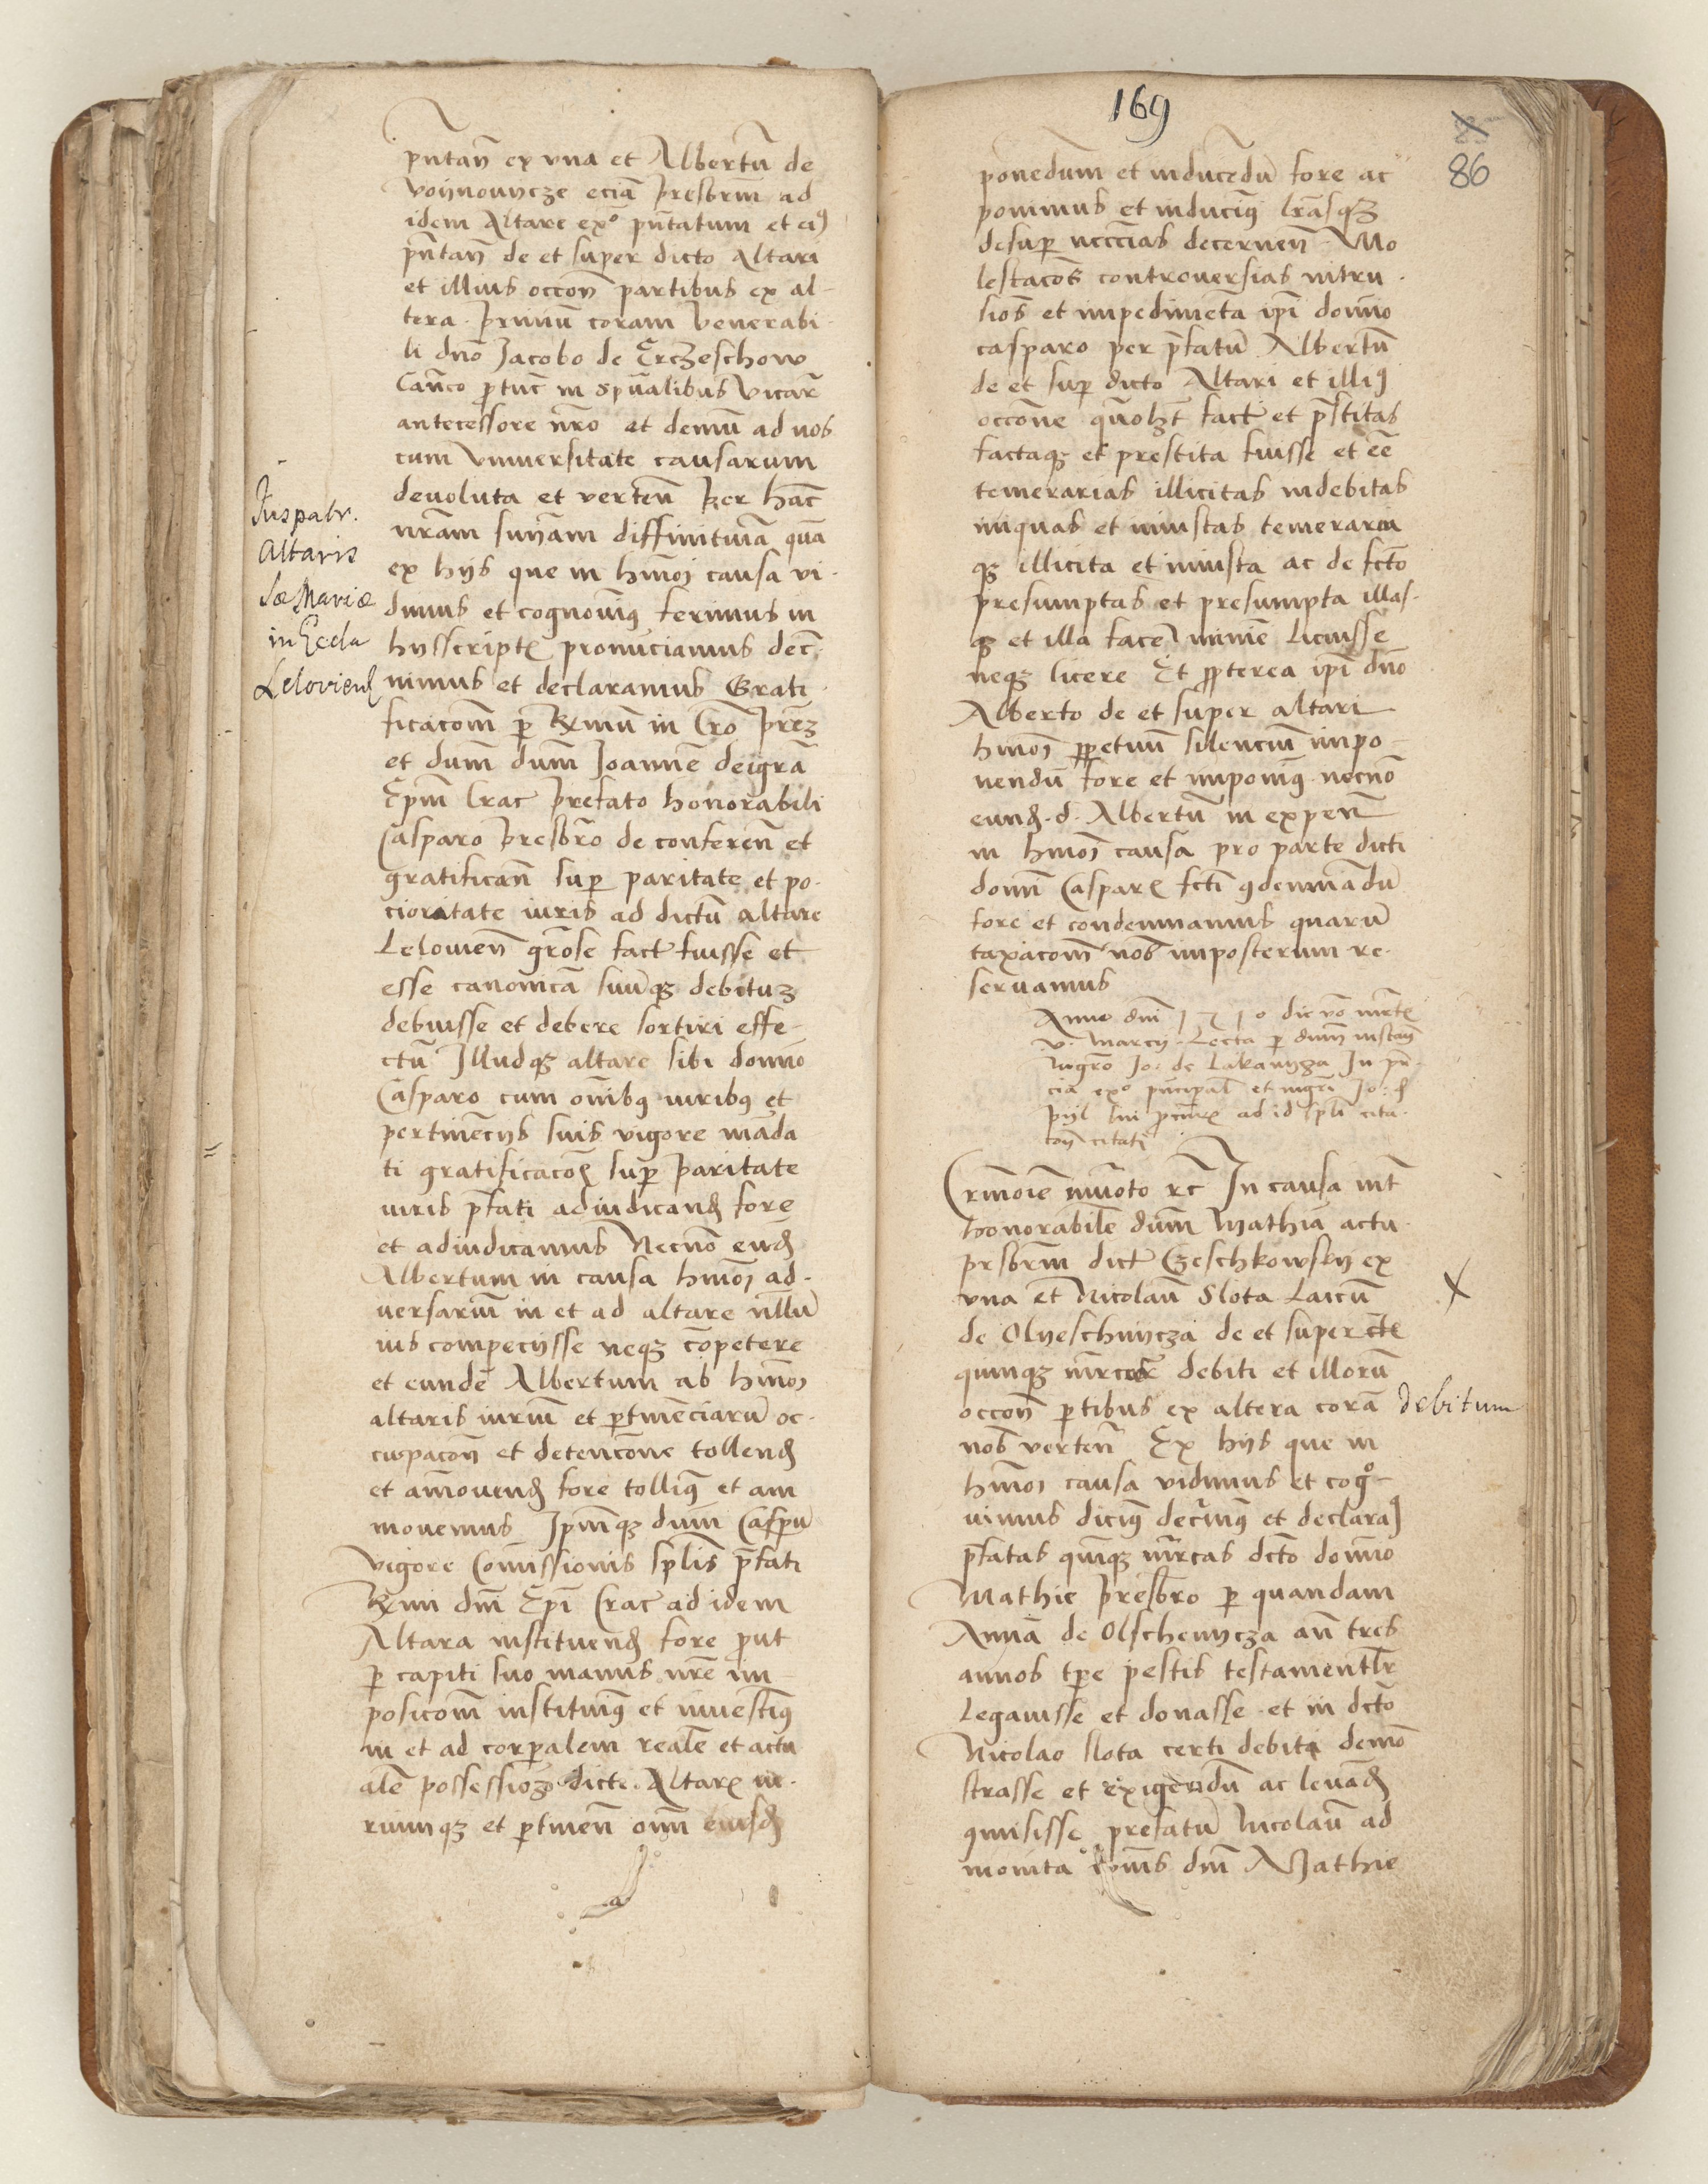 pn̄tan̄ ex vna et Albertū de
voijnouncze eciā presbrm̄ ad
idem Altare exº pn̄tatum et eiꝯ
pn̄tan̄ de et super dicto Altari
et illius occōn partibus ex al-
tera. primū coram venerabi-
li dn̄o Jacobo de Erczeschow
Can̄co ꝓtūc in sp̄ualibus vicar̄
antecessore nr̄o et demū ad nos
cum vniuersitate causarum
deuoluta et verten̄ per hāc
nr̄am sn̄iam diffinitiuā quā
ex hijs que in hmōi causa vi-
dimus et cognouimꝯ ferimus in
hijsscriptꝭ pronūciamus dec̄-
nimus et declaramus Grati-
ficacōm ꝑ Rx̄mū in Cr̄o pr̄eꝫ
et dūm dūm Joannē deigrā
Ep̄m Crac̄ prefato honorabili
Casparo presbr̄o de conferen̄ et
gratifican̄ suꝑ paritate et po-
cioritate iuris ad dictū altare
Lelouien̄ gr̄ose fact̄ fuisse et
esse canonicā suūqꝫ debituꝫ
debuisse et debere sortiri effe-
ctū Illudqꝫ altare sibi domīo
Casparo cum om̄ibꝯ iuribꝯ et
pertinēcijs suis vigore māda
ti gratificacōꝭ suꝑ paritate
iuris p̄fati adiudicanḍ fore
et adiudicamus Necnō eūḍ
Albertum in causa hmōi ad-
uersariū in et ad altare nllū
ius competijsse neqꝫ cōpetere
et eundē Albertum ab hmōi
altaris iuriū et ꝑtinēciarū oc-
cupacōn et detencōne tollenḍ
et amouenḍ fore tollimꝯ et am
mouemus Ipmqꝫ dūm Casparū
vigore Comissionis sp̄lis p̄fati
Rx̄mi dn̄i Ep̄i Crac̄ ad idem
Altare instituenḍ fore prout
ꝑ capiti suo manus nr̄e im-
posicōm instituimꝯ et inuestimꝯ
in et ad corporalem realē et actu
alē possessioꝫ dicte Altarꝭ iu-
riumqꝫ et ꝑtinen̄ om̄n eiusḍ
Jus patr.
Altaris
Sæ Mariæ
in Eccla
Leloviens
169
86
ponēdum et inducēdū fore ac
ponimus et inducimꝯ lr̄asqꝫ
desuꝑ necc̄ias decernen̄ Mo
lestacōes controuersias intru-
siōs et impedimēta ip̄i domīo
casparo per p̄fatū Albertū
de et suꝑ dicto Altari et illiꝯ
occōne quōlꝫt fact̄ et p̄stitas
factaqꝫ et prestita fuisse et eē
temerarias illicitas indebitas
iniquas et iniustas temeraria
qꝫ illicita et iniusta ac de fcto
presumptas et presumpta illas-
qꝫ et illa facē̄ minīe licuisse
neqꝫ licere Et ꝓpterea ip̄i dn̄o
Alberto de et super altari
hmōi ꝑpetuū silenciū impo-
nendū fore et imponimꝯ necnō
eunḍ d. Albertū in expen̄
in hmōi causa pro parte dicti
domī Casparꝭ fctī ꝯdemnādū
fore et condemnamus quarū
taxacōm nob̄ imposterum re-
seruamus
Anno dn̄i 1510 die vo mrt̄ꝭ
v. Marcij Lecta ꝑ dūm instan̄
mgr̄o Jo. de Lakanyza In pn̄-
cia exº pn̄cipal̄ et mgri Jo. ḍ
pijl sui ꝓcuꝭ ad id sp̄li cita-
con citati
Crimōīe inuoto rc̄ In causa int̄
honorabilē dūm Mathiā actu-
presbrm̄ dict̄ Czeschkowsky ex
vna et Nicolaū Slota Laicū
de Olyeschnijcza de et super cte
quinqꝫ mrcar̄ debiti et illorū
occōn ꝑtibus ex altera corā
nob̄ verten̄ Ex hijs que in
hmōi causa vidimus et cogº-
uimus dicimꝯ decernimꝯ et declaraꝯ
p̄fatas quinqꝫ mrcas dcto domīo
Mathie presbro ꝑ quandam
Annā de Olschenycza an̄ tres
annos tp̄e pestis testamentl̄r
Legauisse et donasse et in dcto
Nicolao slota certi debiti demō
strasse et exigendū ac leuāḍ
ꝯmisisse prefatū Nicolaū ad
monita dn̄i Mathie
X
debitum